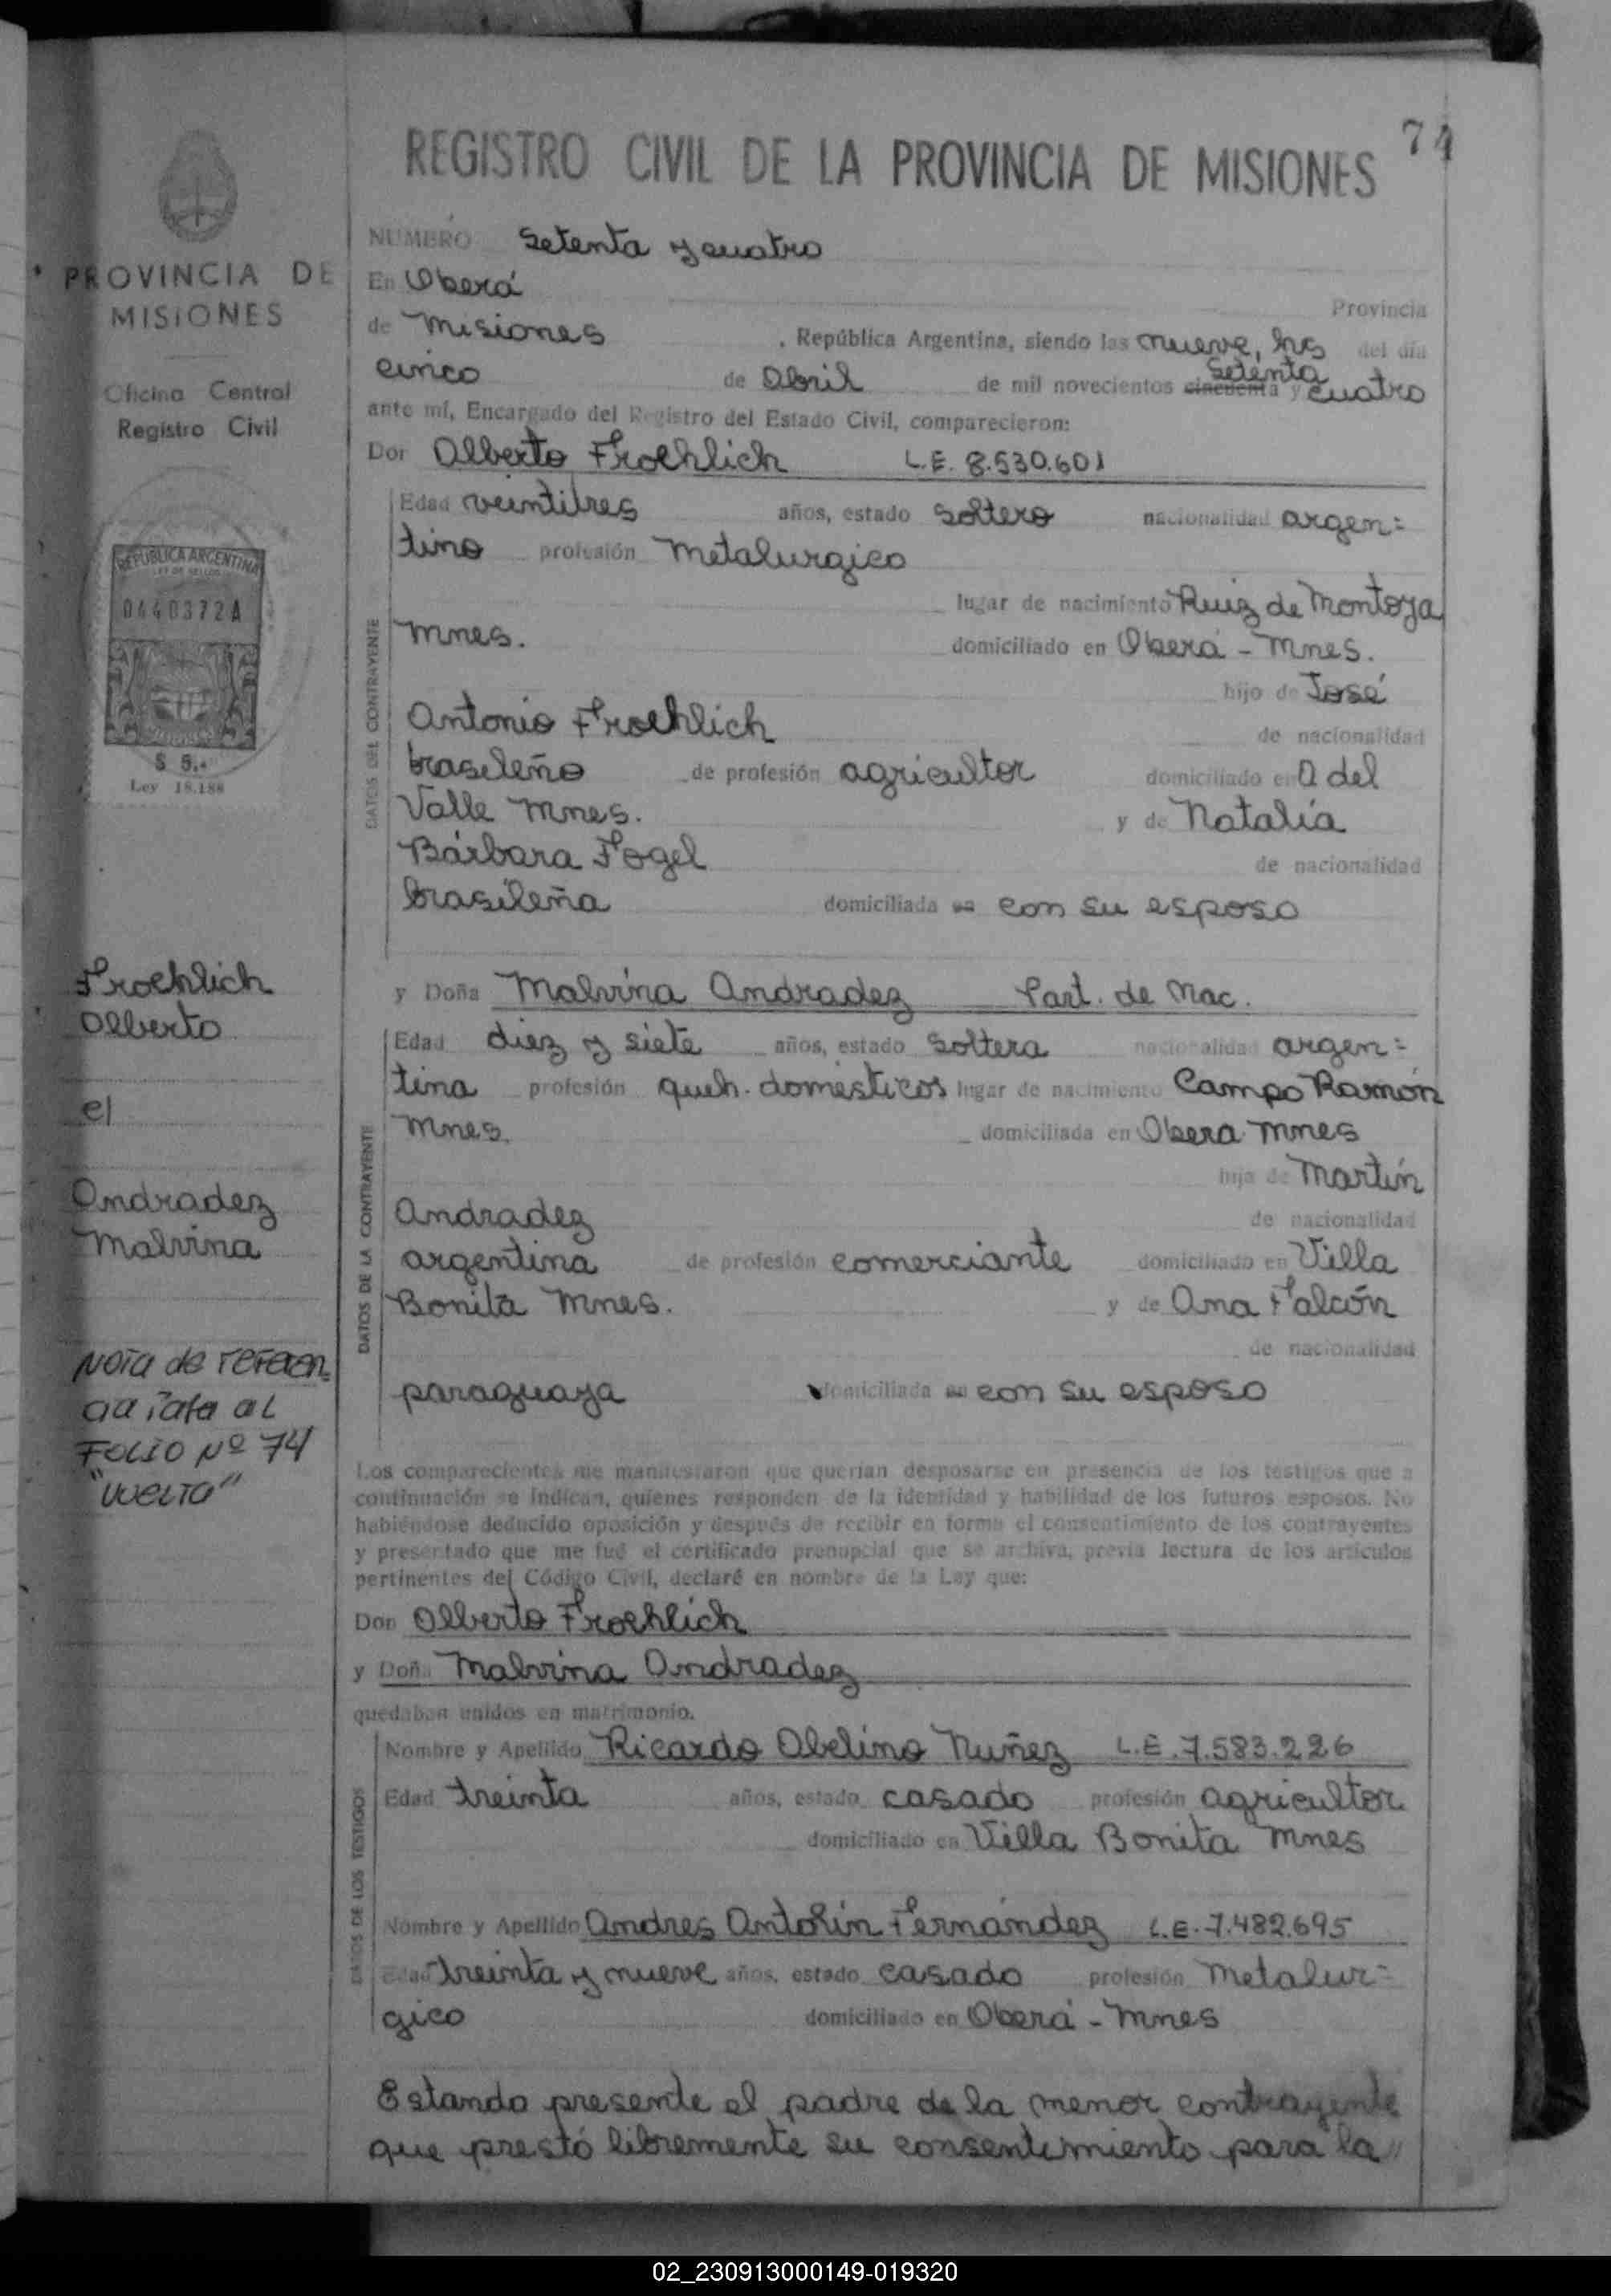 74
REGISTRO CIVIL DE LA PROVINCIA DE MISIONES
NUMERO Setenta y cuatro
En Oberá
Provincia
de Misiones , República Argentina, siendo las nueve, hs del día
cinco de Abril de mil novecientos cincuenta Setenta y cuatro
ante mí, Encargado del Registro del Estado Civil, comparecieron:
Don Alberto Froehlich L.E. 8.530.601
Edad veintitres años, estado soltero nacionalidad argen=
tino profesión Metalurgico
lugar de nacimiento Ruiz de Montoya
Mnes. domiciliado en Oberá - Mnes.
hijo de José
Antonio Froehlich de nacionalidad
brasileño de profesión agricultor domiciliado en A del
Valle Mnes. y de Natalia
Bárbara Fogel de nacionalidad
brasileña domiciliada en con su esposo
y Doña Malvina Andradez Part. de Nac.
Edad diez y siete años, estado soltera nacionalidad argen=
tina profesión queh. domésticos lugar de nacimiento Campo Ramón
Mnes. domiciliada en Obera Mnes
hija de Martín
Andradez de nacionalidad
argentina de profesión comerciante domiciliado en Villa
Bonita Mnes. y de Ana Falcón
de nacionalidad
paraguaya domiciliada en con su esposo
Los comparecientes me manifestaron que querían desposarse en presencia de los testigos que a
continuación se indican, quienes responden de la identidad y habilidad de los futuros esposos. No
habiéndose deducido oposición y después de recibir en forma el consentimiento de los contrayentes
y presentado que me fué el certificado prenupcial que se archiva, previa lectura de los artículos
pertinentes del Código Civil, declaré en nombre de la Ley que:
Don Alberto Froehlich
y Doña Malvina Andradez
quedaban unidos en matrimonio.
Nombre y Apellido Ricardo Abelino Nuñez L.E. 7.583.226
Edad treinta años, estado casado profesión agricultor
domiciliado en Villa Bonita Mnes
Nombre y Apellido Andres Antolin Fernández L.E. 7.482.695
Edad treinta y nueve años, estado casado profesión Metalur=
gico domiciliado en Oberá - Mnes
Estando presente el padre de la menor contrayente
que prestó libremente su consentimiento para la //
DATOS DEL CONTRAYENTE
DATOS DE LA CONTRAYENTE
DATOS DE LOS TESTIGOS
PROVINCIA DE
MISIONES
Oficina Central
Registro Civil
REPUBLICA ARGENTINA
LEY DE SELLOS
0440372A
$ 5.-
Ley 18.188
Froehlich
Alberto
c/
Andradez
Malvina
NOTA de referen-
FOLIO Nº 74
"VUELTA"
02_230913000149-019320